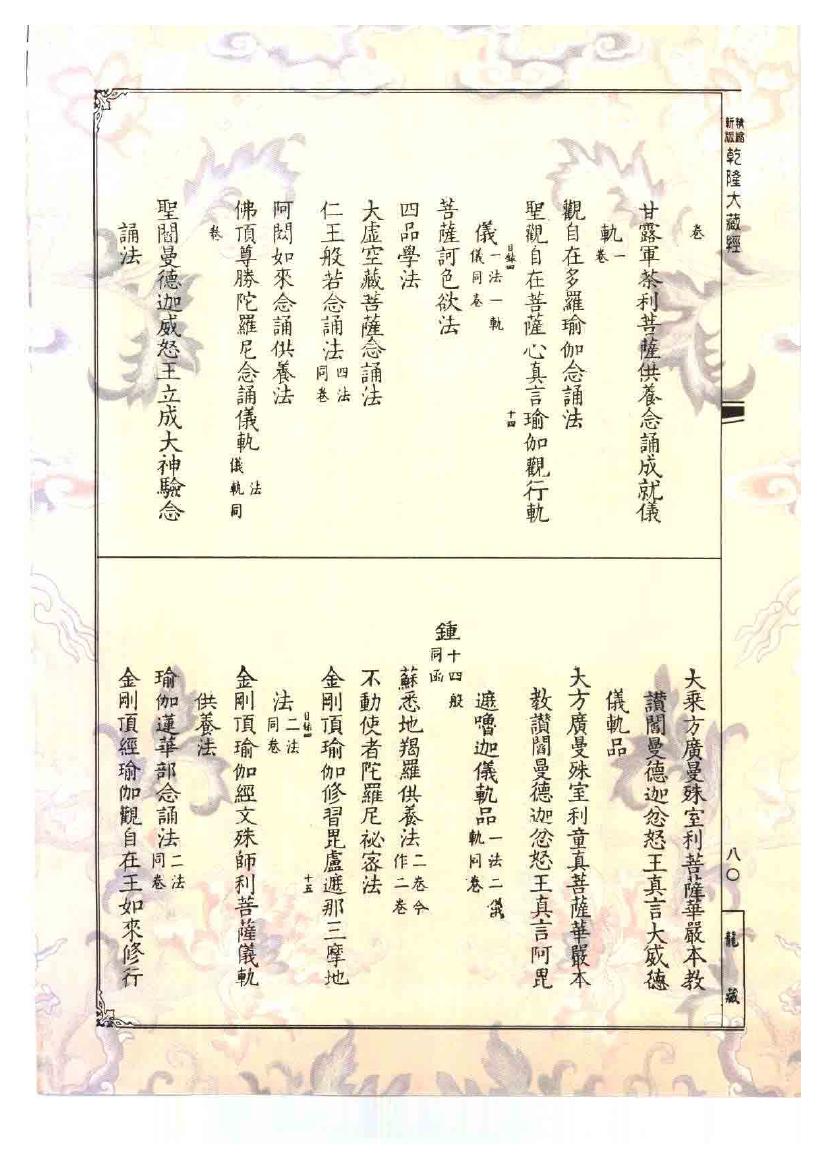 新縮
版精
乾隆大藏經
卷
甘露軍荼利菩薩供養念誦成就儀
軌一卷
觀自在多羅瑜伽念誦法
聖觀自在菩薩心真言瑜伽觀行軌
儀一法一軌儀同卷
目錄四
十四
菩薩訶色欲法
四品學法
大虛空藏菩薩念誦法
仁王般若念誦法四法同卷
阿閦如來念誦供養法
佛頂尊勝陀羅尼念誦儀軌法儀軌同
卷
聖閻曼德迦威怒王立成大神驗念
誦法
大乘方廣曼殊室利菩薩華嚴本教
讚閻曼德迦忿怒王真言大威德
儀軌品
大方廣曼殊室利童真菩薩華嚴本
教讚閻曼德迦忿怒王真言阿毘
遮嚕迦儀軌品一法二儀軌同卷
鍾十四般同函
蘇悉地羯羅供養法二卷今作二卷
不動使者陀羅尼祕密法
金剛頂瑜伽修習毘盧遮那三摩地
法二法同卷
目錄四
十五
金剛頂瑜伽經文殊師利菩薩儀軌
供養法
瑜伽蓮華部念誦法二法同卷
金剛頂經瑜伽觀自在王如來修行
八〇
龍藏